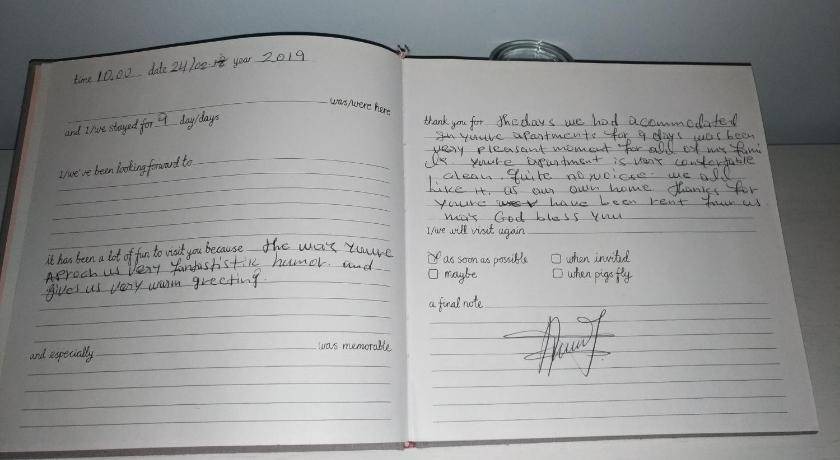 time 10.00 date 24/02 year 2019
was/were here
and I/we stayed for 9 day/days
I/we've been looking forward to
it has been a lot of fun to visit you because the way youre
aproch us very fantastistik humor. and
gives us very warm greeting.
and especially was memorable
thank you for the days we had acommodated
In youre apartments for 9 days was been
very pleasant moment for all of my fami
ly. youre apartment is very comfortable
clean. Quite no voicse. we all
like it, as our own home. thanks for
youre have been rent your us
may God bless you
I/we will visit again
as soon as possible
when invited
maybe
when pigs fly
a final note